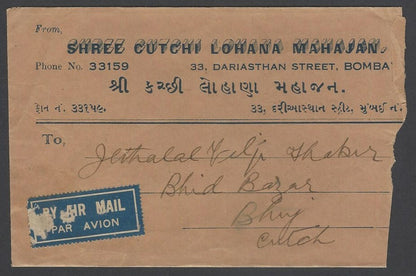 From,
SHREE CUTCHI LOHANA MAHAJAN.
Phone No. 33159
33, DARIASTHAN STREET, BOMBA
શ્રી કચ્છી લોહાણા મહાજન.
ફોન નં. ૩૩૧૫૯.
૩૩, દરીઆસ્થાન સ્ટ્રીટ, મુંબઈ નં.
To,
Jethalal Velji Thakur
Bhid Bazar
Bhuj
Cutch
BY AIR MAIL
PAR AVION